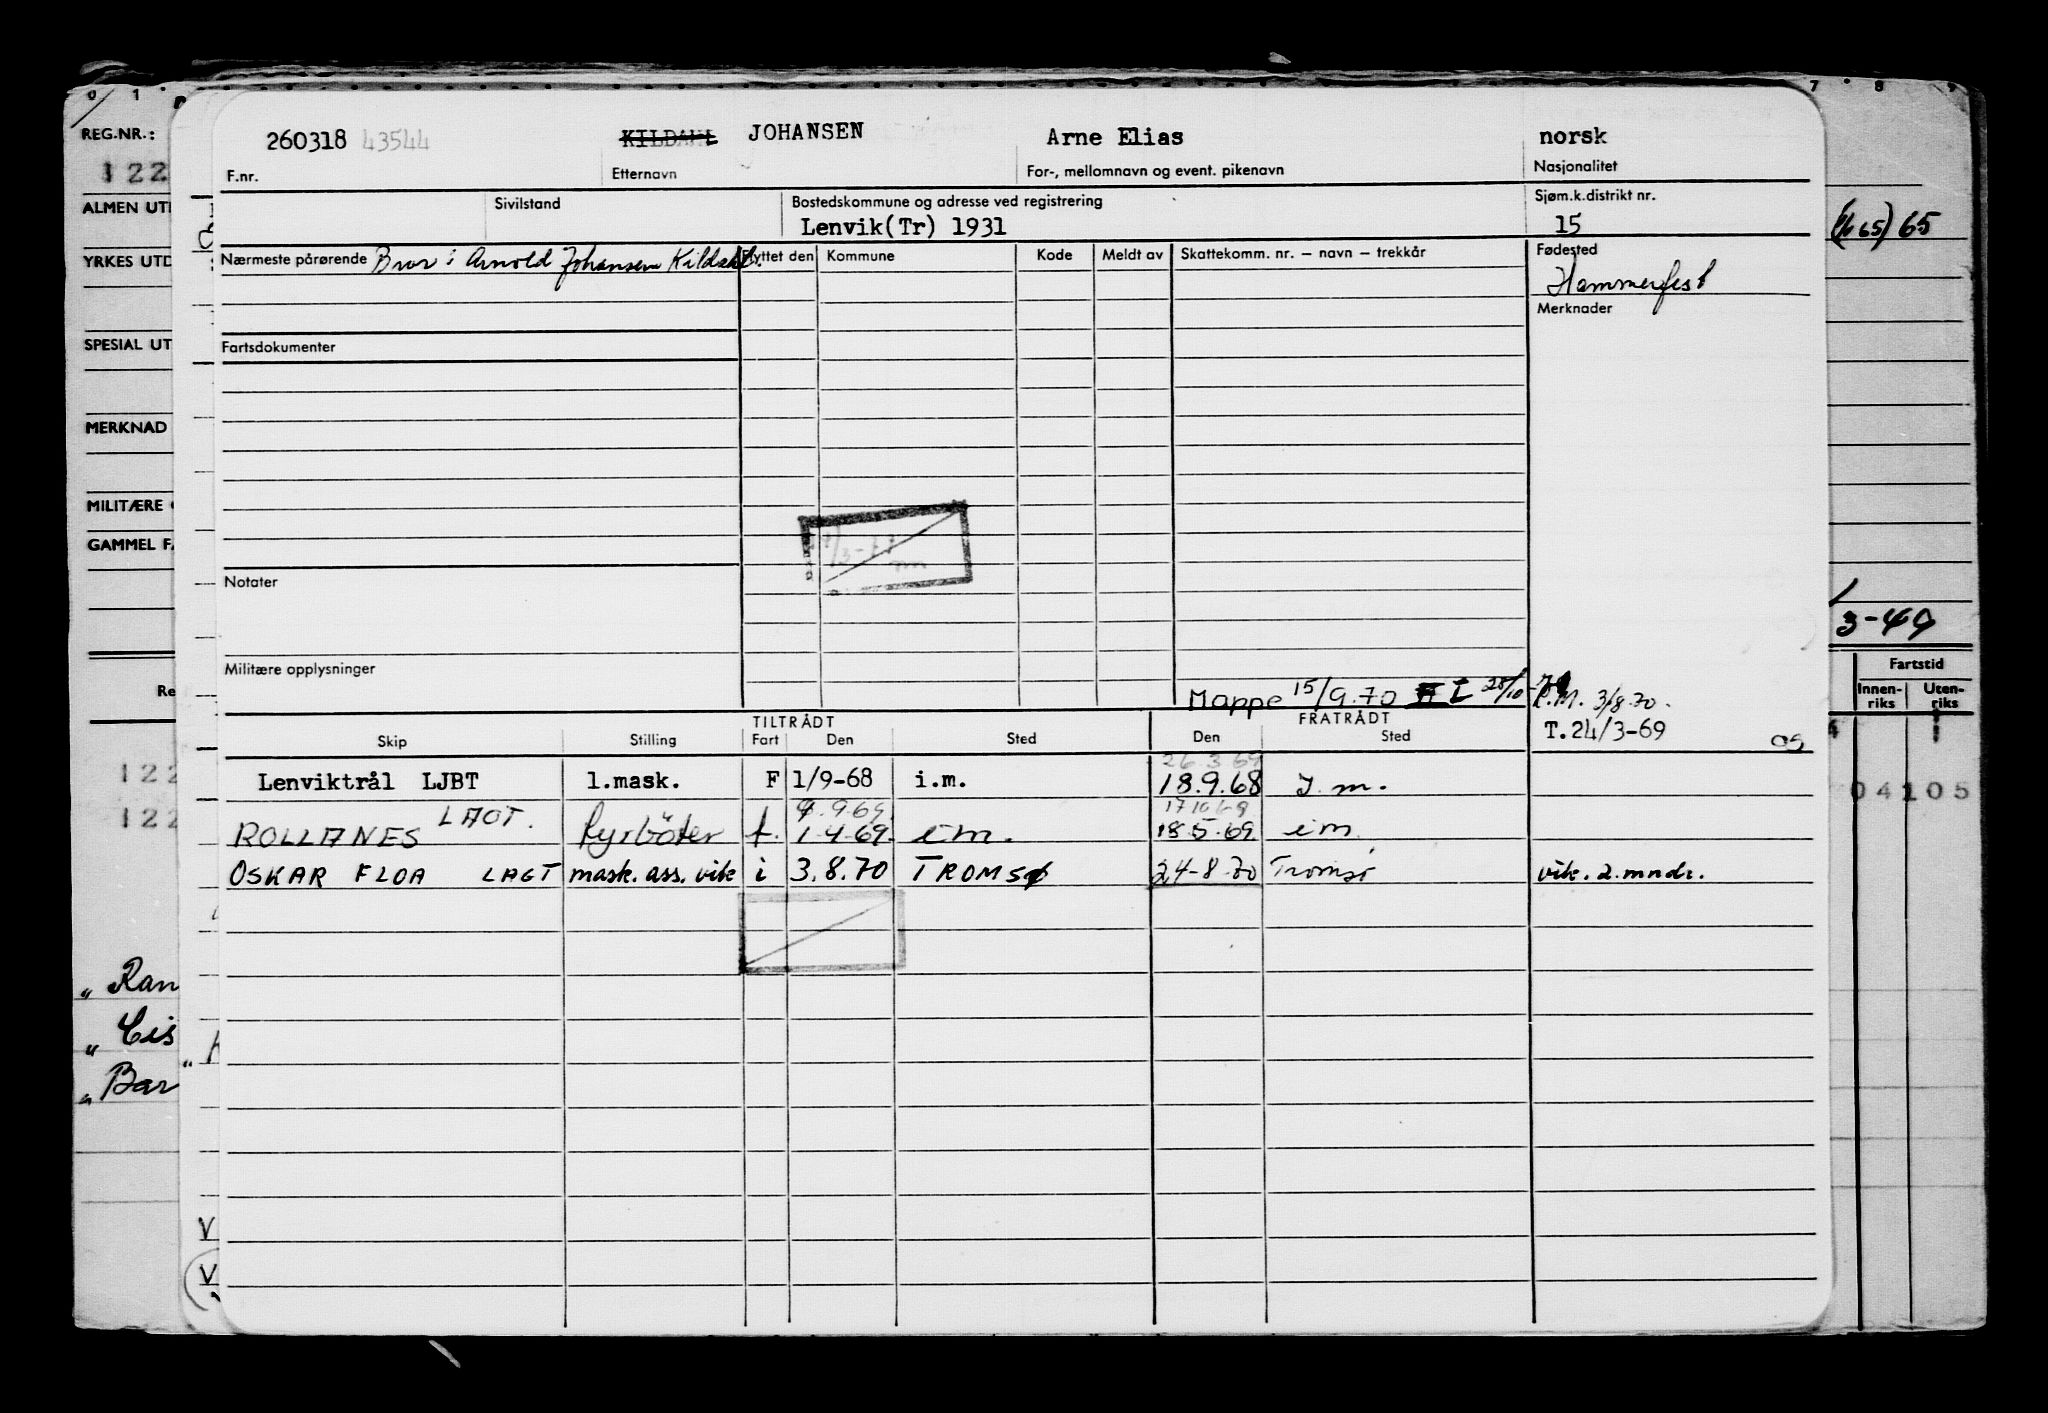 0 1 7 8 9
REG.NR.:
122
260318 43544 KILDAHL JOHANSEN Arne Elias norsk
F.nr. Etternavn For-, mellomnavn og event. pikenavn Nasjonalitet
ALMEN UT
Sivilstand Bostedskommune og adresse ved registrering Sjøm.k.distrikt nr.
Lenvik(Tr) 1931 15
65
YRKES UTD
Nærmeste pårørende Bror: Arnold Johansen Kildahl. Flyttet den Kommune Kode Meldt av Skattekomm. nr. – navn – trekkår Fødested
Hammerfest
Merknader
SPESIAL UT
Fartsdokumenter
MERKNAD
MILITÆRE
GAMMEL F
Notater
3-49
Militære opplysninger
Fartstid
Innen-riks Uten-riks
Mappe 15/9.70 3/8.70.
TILTRÅDT FRATRÅDT
T.24/3-69 05
Skip Stilling Fart Den Sted Den Sted
26.3.69
Lenviktrål LJBT 1.mask. F 1/9-68 i.m. 18.9.68 I.m.
122 04105
9.69 17.10.69
ROLLANES LAOT. Fyrböter f. 1.4.69. i m. 18.5.69 i m.
122
OSKAR FLOA LAGT mask.ass.vik i 3.8.70 TROMSØ 24-8-70 Tromsø vik. 2. mndr.
„ Ran
„ Cis
„ Bar
V
V